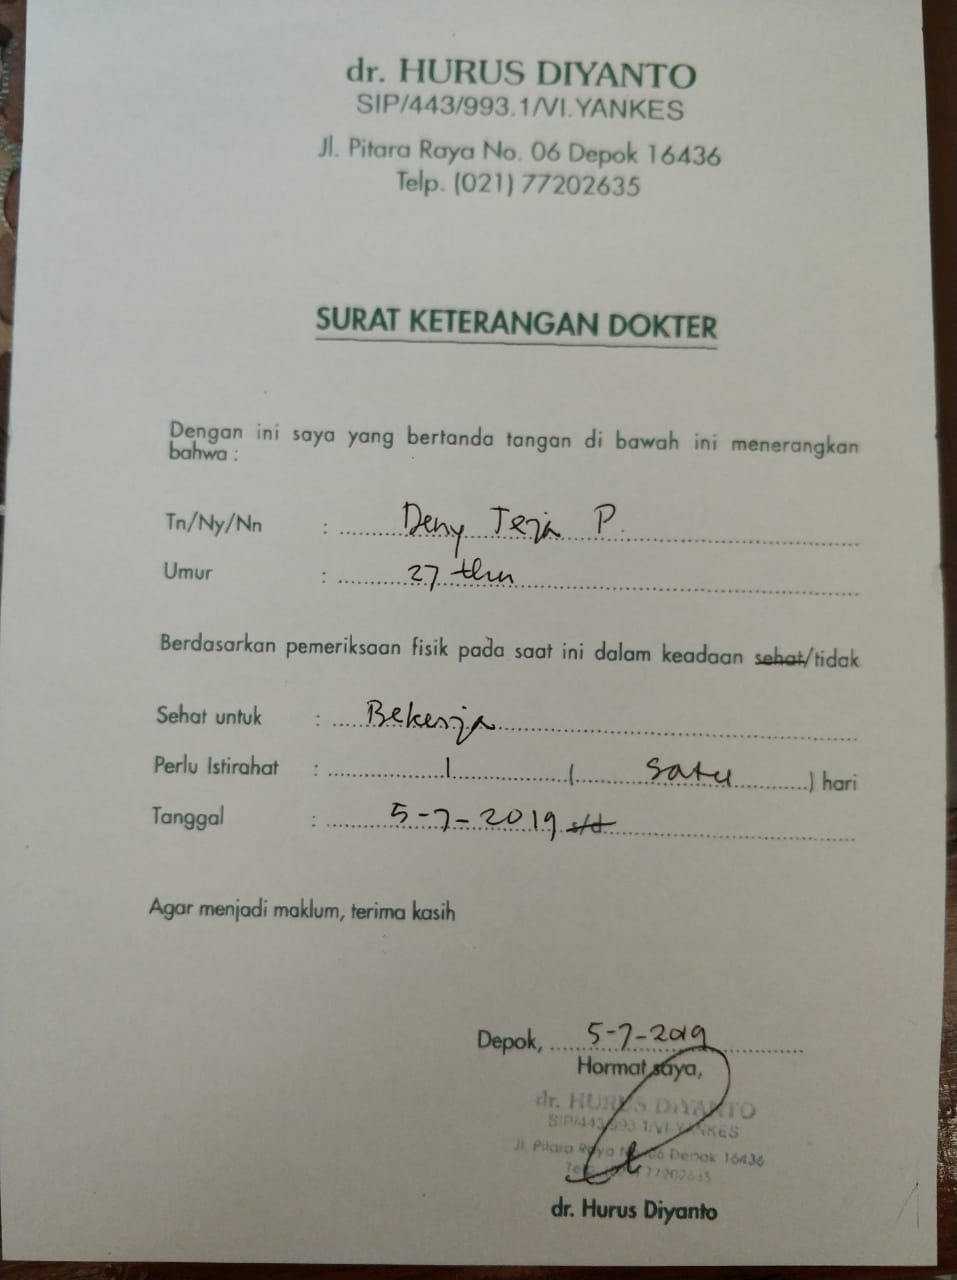 dr. HURUS DIYANTO
SIP/443/993.1/VI.YANKES
Jl. Pitara Raya No. 06 Depok 16436
Telp. (021) 77202635
SURAT KETERANGAN DOKTER
Dengan ini saya yang bertanda tangan di bawah ini menerangkan
bahwa :
Tn/Ny/Nn : Deny Teja P.
Umur : 27 thn
Berdasarkan pemeriksaan fisik pada saat ini dalam keadaan sehat/tidak
Sehat untuk : Bekerja
Perlu Istirahat : 1 ( satu ) hari
Tanggal : 5-7-2019 s/d
Agar menjadi maklum, terima kasih
Depok, 5-7-2019
Hormat saya,
dr. HURUS DIYANTO
SIP/443/993.1/VI-YANKES
Jl. Pitara Raya No. 06 Depok 16436
Telp. (021) 77202635
dr. Hurus Diyanto